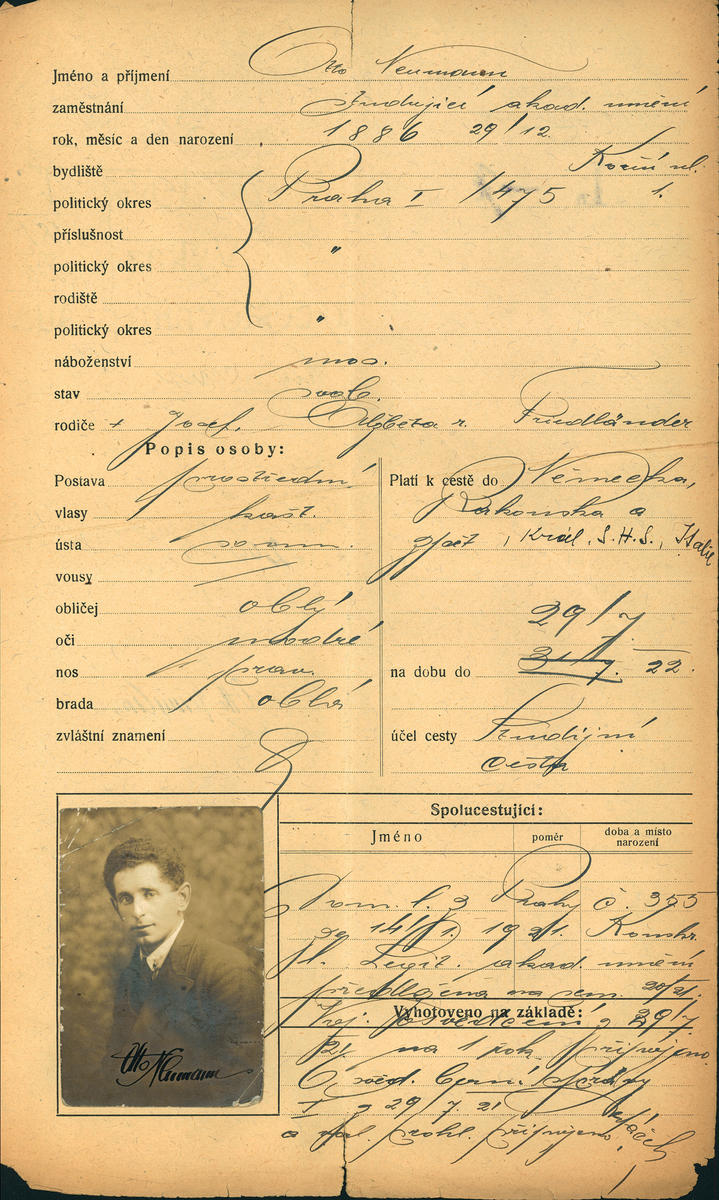 Jméno a příjmení Otto Neumann
zaměstnání studující akad. umění
rok, měsíc a den narození 1886 29/12.
bydliště
politický okres Praha I 1475 1.
příslušnost
politický okres "
rodiště
politický okres "
náboženství mos.
stav svob.
rodiče + Josef, Elzbeta r. Friedländer
Popis osoby:
Postava prostřední
vlasy kašt.
ústa
vousy
obličej oblý
oči modré
nos prav.
brada oblá
zvláštní znamení
Platí k cestě do Německa,
Rakouska a
zpět, Král. S.H.S., Italie
29/7.
na dobu do 31/7. 22.
účel cesty Studijní
cesta
Spolucestující:
Jméno poměr doba a místo narození
Dom. l. z Prahy č. 355
14/1. 1921.
Legit. akad. umění
předložena na sem. 20/21.
Vyhotoveno na základě:
Voj. osvědčení z 29/7.
21 na 1 rok připojeno.
Osvěd. berní správy
I z 29/7. 21
a pol. prohl. připojeno.
Otto Neumann